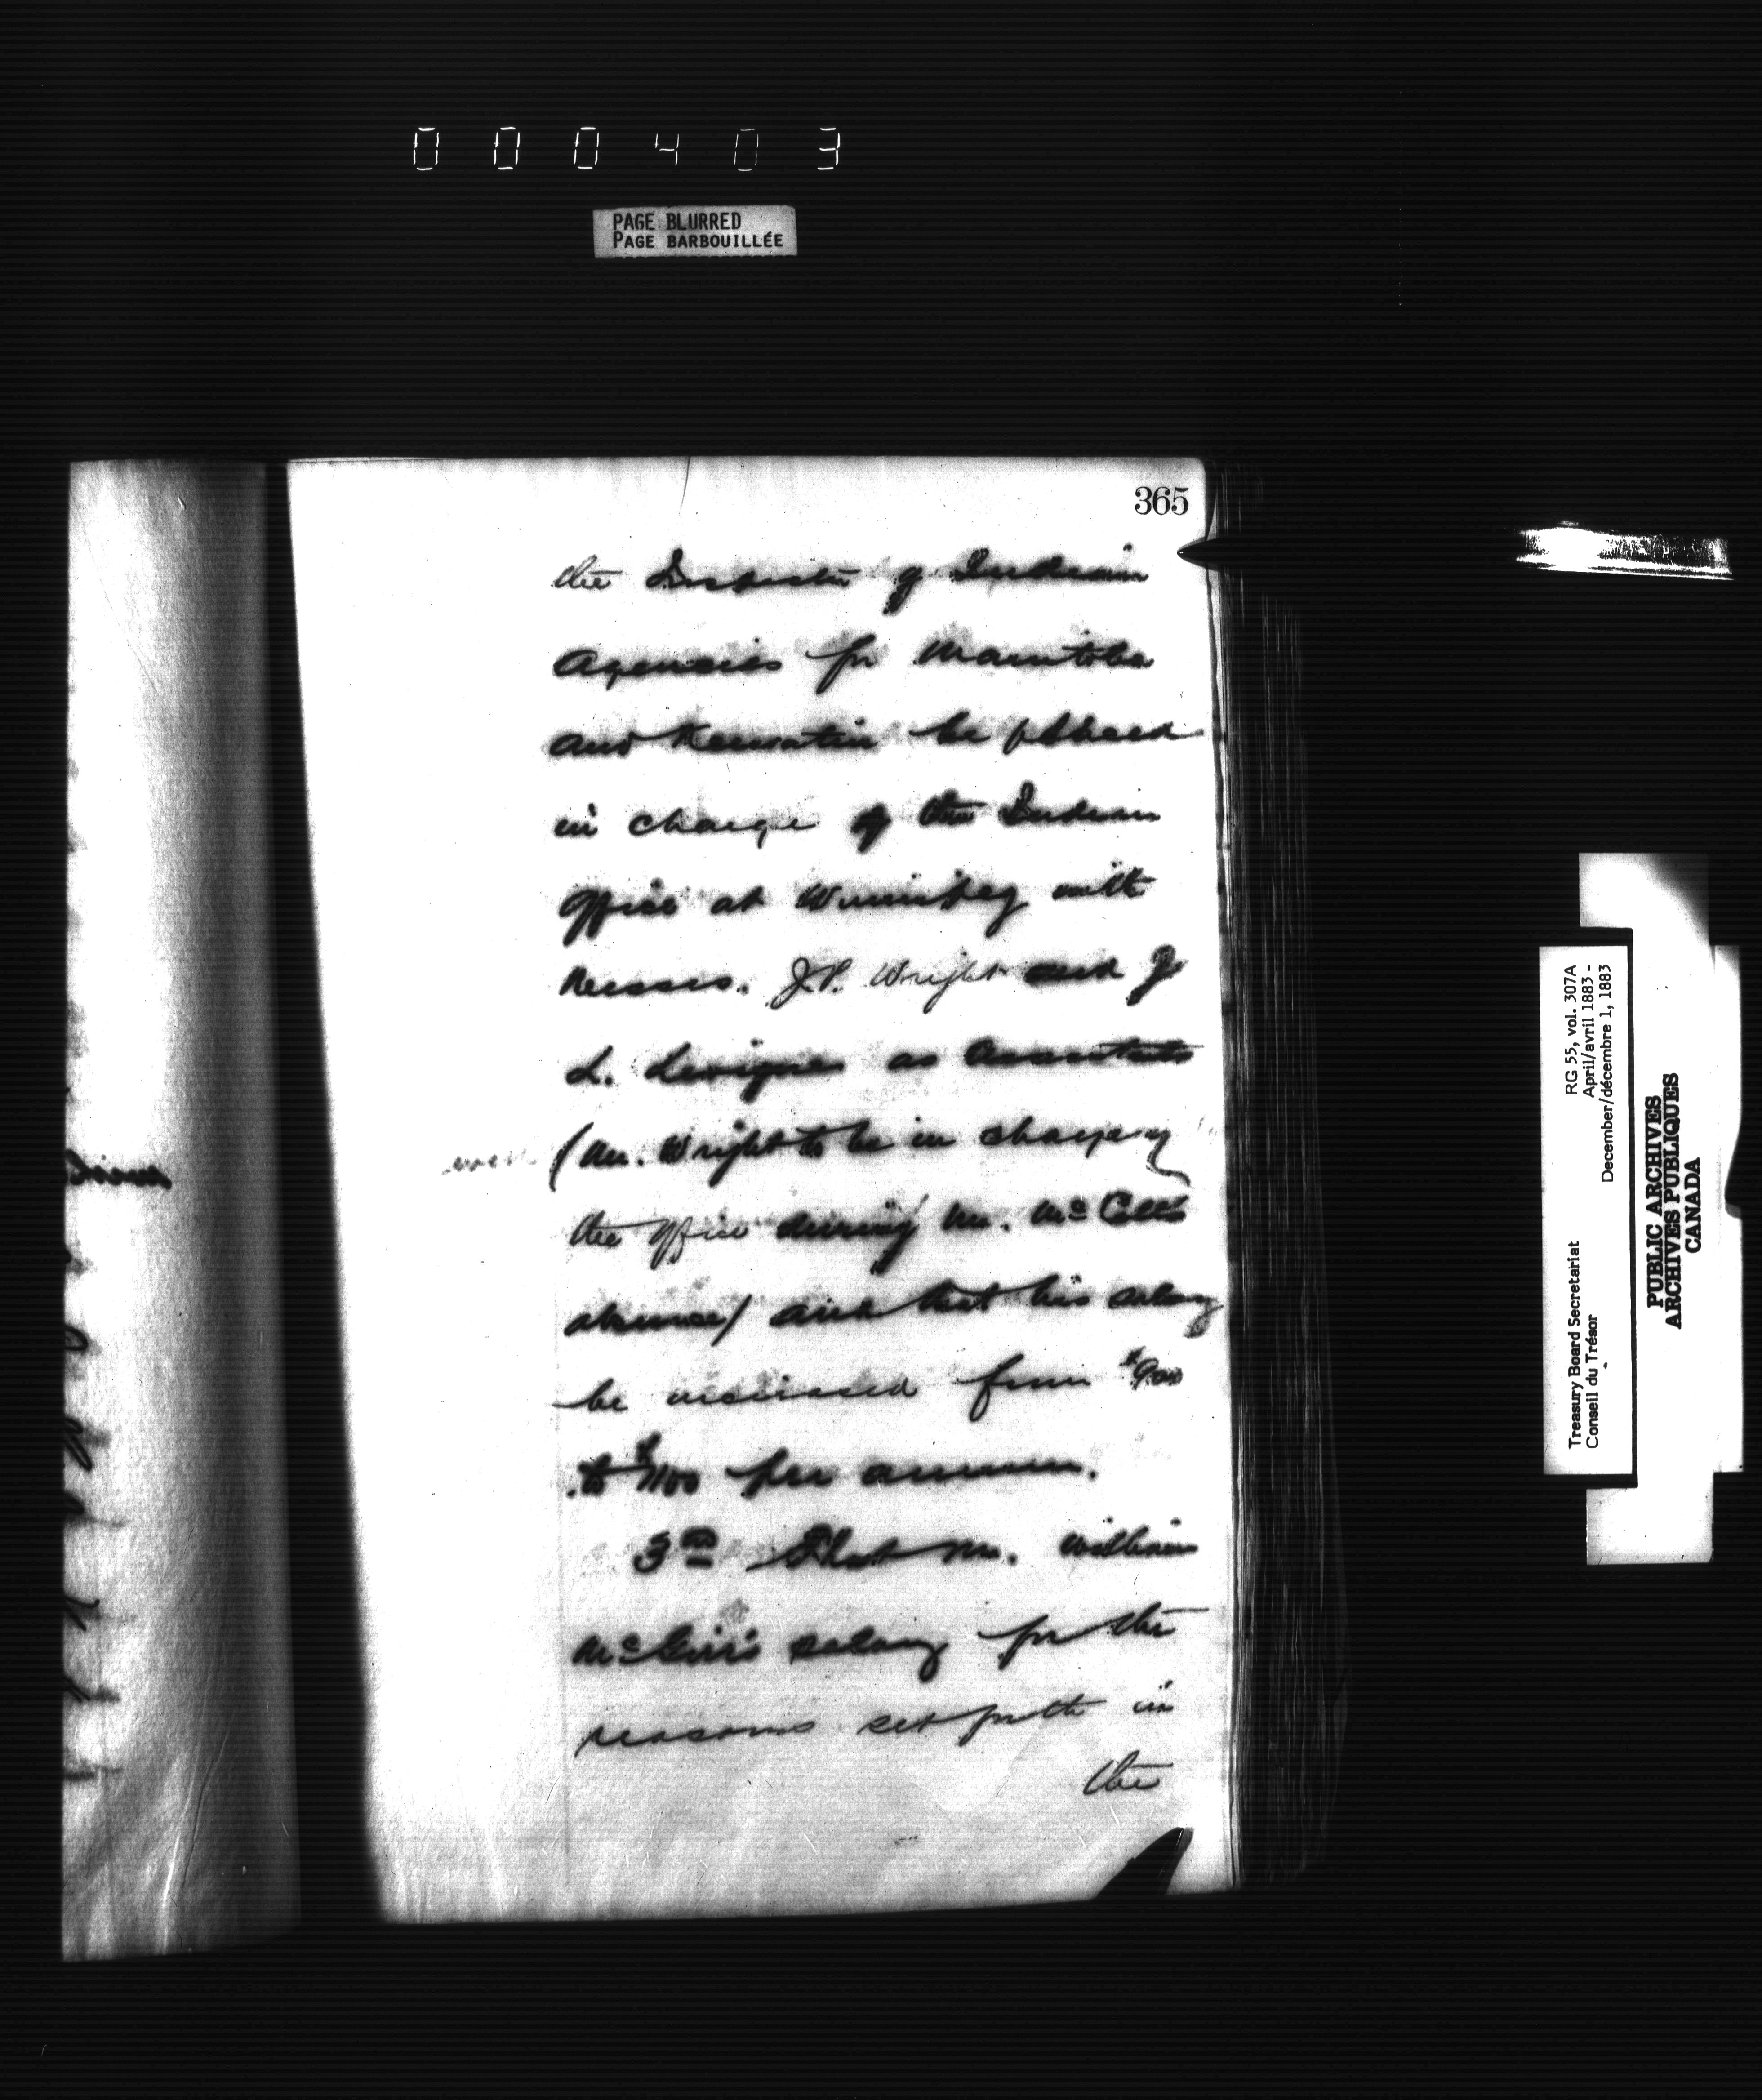 000403
PAGE BLURRED
PAGE BARBOUILLÉE
365
the Inspector of Indian
Agencies for Manitoba
and Keewatin be placed
in charge of the Indian
Office at Winnipeg with
Messrs. J.P. Wright and J
L. Levigne as assistants
(Mr. Wright to be in charge of
the office during Mr. McColl's
absence) and that his salary
be increased from $900
to $1100 per annum.
3rd That Mr. William
McGirr's salary for the
reasons set forth in
the
RG 55, vol. 307A
April/avril 1883 -
December/décembre 1, 1883
Treasury Board Secretariat
Conseil du Trésor
PUBLIC ARCHIVES
ARCHIVES PUBLIQUES
CANADA